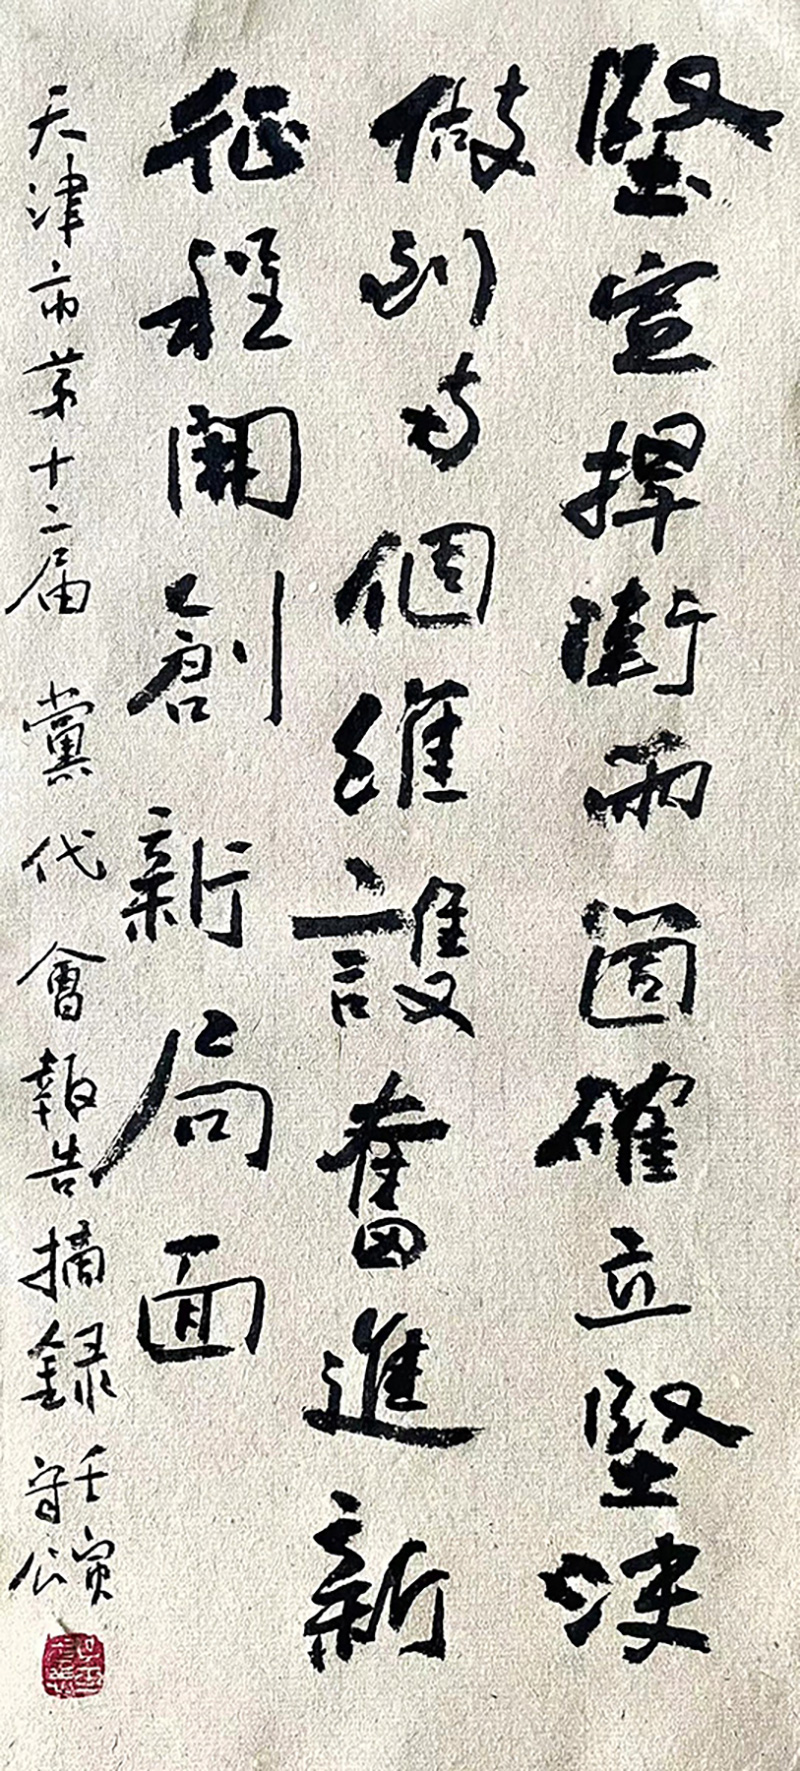 堅宣捍衛兩箇確立堅決
做到兩個維護奮進新
征程開創新局面
天津市第十二届黨代會報告摘録
壬寅